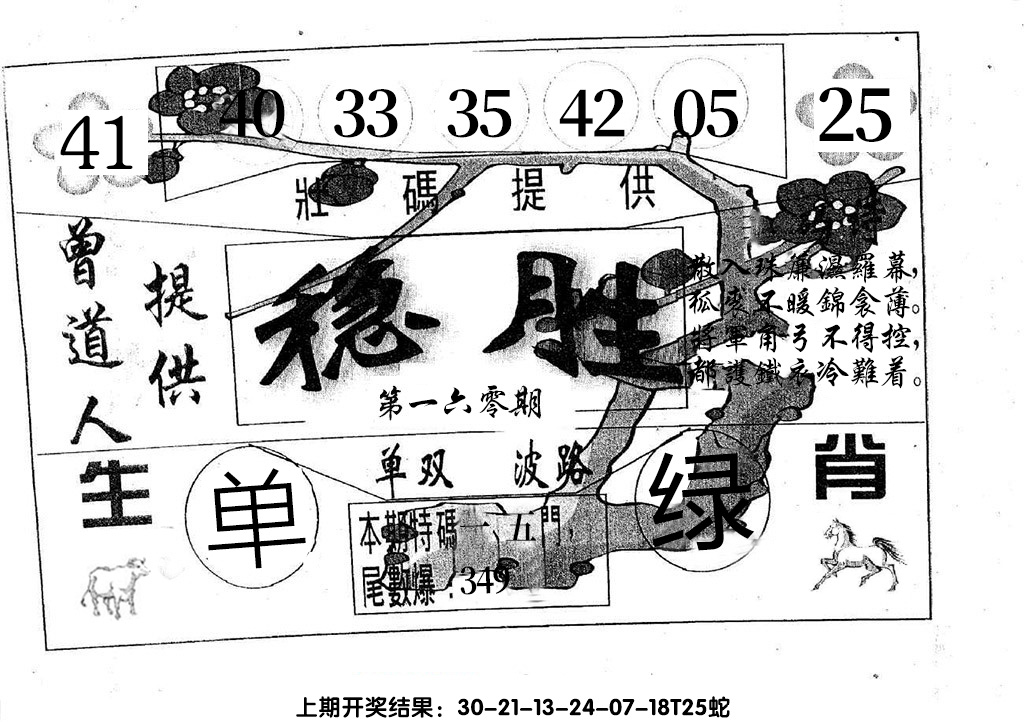 41 40 33 35 42 05 25
壯碼提供
曾道人
提供
稳胜
第一六零期
散入珠簾濕羅幕,
狐裘不暖錦衾薄。
將軍角弓不得控,
都護鐵衣冷難着。
单双 波路
生
肖
单
绿
本期特碼一、五門,
尾數爆:349
上期开奖结果：30-21-13-24-07-18T25蛇